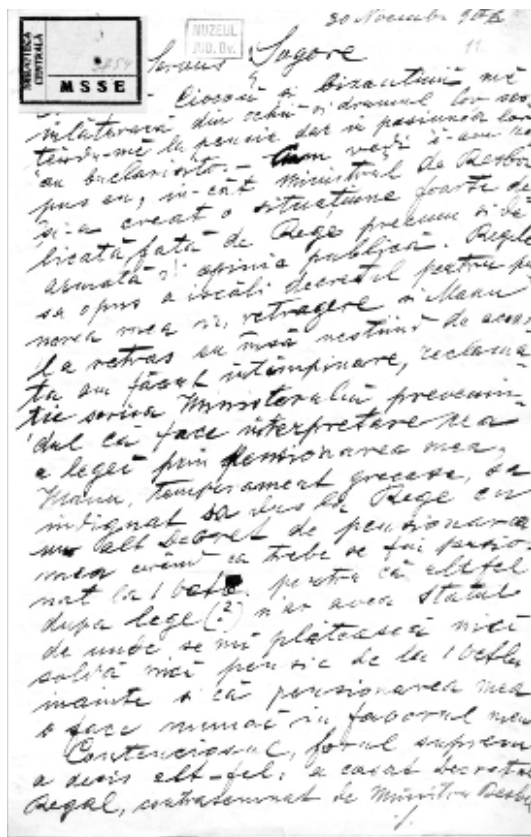 30 Novembre 906
11
MUZEUL
JUD. Bv.
BIBLIOTECA
CENTRALĂ
MSSE
Sogore
Ciocoii și bizantinii mě
înlăturară din ochii și drumul lor
la pensie dar in pasiunea lor
au
pus eu, in-cât Ministrul de Resbo
și-a creat o situațiune foarte de
licată față de Rege precum si de
armată și opinia publică. Regele
sa opus a iscăli decretul pentru
mea si retragere si Manu
la retras eu însă neștiind de
am făcut intimpinare, reclama
ție scrisa Ministerului
dul că face interpretare rea
a legei prin pensionarea mea,
Manu, temperament grecesc, sa
indignat sa dus la Rege cu
un alt Decret de pensionarea
mea că trebe se fui pensio
nat la 1 pentru că altfel
dupa lege (?) n'ar avea Statul
de unde se mi plătească nici
soldă nici pensie de la 1
inainte si că pensionarea mea
o face numai in favorul meu
Contenciosul, forul suprem
a decis alt-fel; a casat decretul
Regal, contrasemnat de Ministru